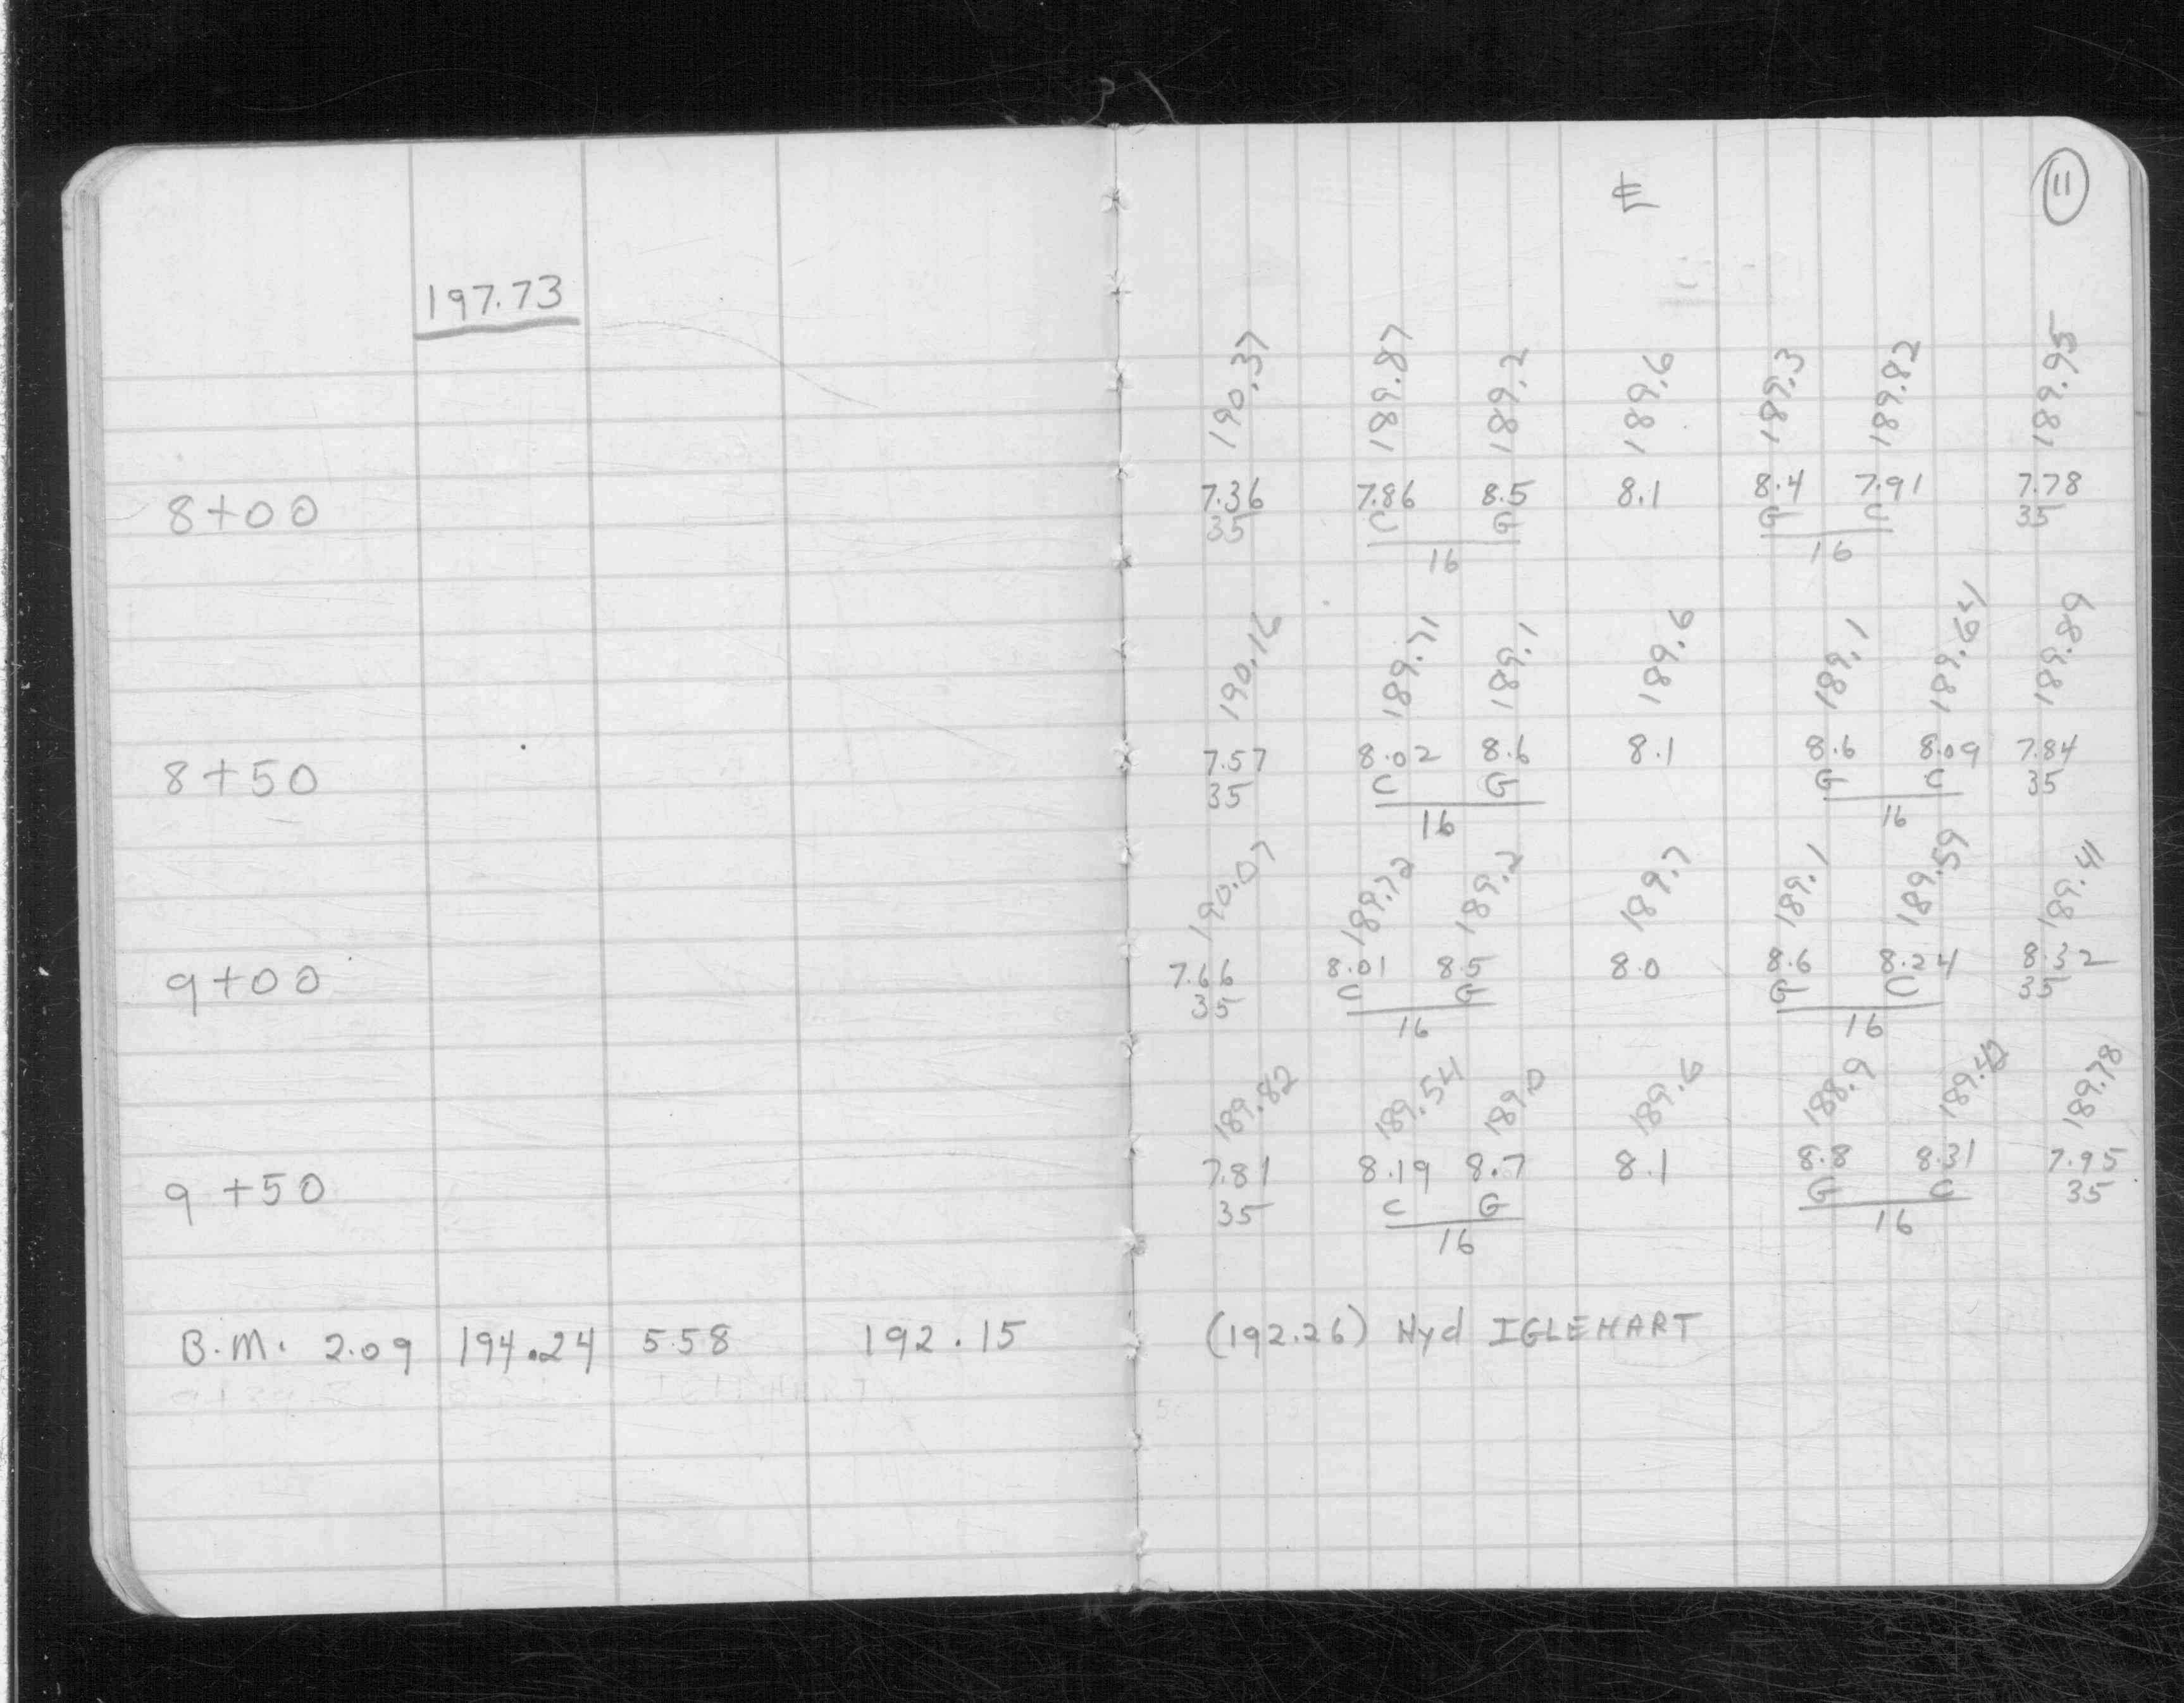 11
℄
197.73
190.37 189.87 189.2 189.6 189.3 189.82 189.95
8+00 7.36 7.86 8.5 8.1 8.4 7.91 7.78
35 C G G C 35
16 16
190.16 189.71 189.1 189.6 189.1 189.64 189.89
8+50 7.57 8.02 8.6 8.1 8.6 8.09 7.84
35 C G G C 35
16 16
190.07 189.72 189.2 189.7 189.1 189.59 189.41
9+00 7.66 8.01 8.5 8.0 8.6 8.24 8.32
35 C G G C 35
16 16
189.82 189.54 189.0 189.6 188.9 189.42 189.78
9+50 7.81 8.19 8.7 8.1 8.8 8.31 7.95
35 C G G C 35
16 16
B.M. 2.09 194.24 5.58 192.15 (192.26) Hyd IGLEHART